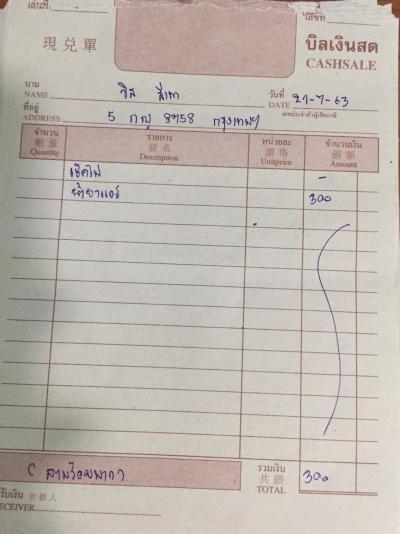 เล่มที่.
เลขที่
現兑單
บิลเงินสด
CASHSALE
นาม
NAME
วันที่
DATE 21-7-63
ที่อยู่
ADDRESS 5 กญ 8958 กรุงเทพฯ
เลขประจำตัวผู้เสียภาษี
จำนวน
數量
Quantity
รายการ
貨名
Description
หน่วยละ
價格
Unitprice
จำนวนเงิน
銀額
Amount
เช็คไฟ -
น้ำยาแอร์ 300
( สามร้อยบาท )
รวมเงิน
共銀
TOTAL
300
รับเงิน 收銀人
ECEIVER